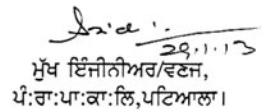 29.1.13
ਮੁੱਖ ਇੰਜੀਨੀਅਰ/ਵਣਜ,
ਪੰ:ਰਾ:ਪਾ:ਕਾ:ਲਿ,ਪਟਿਆਲਾ।